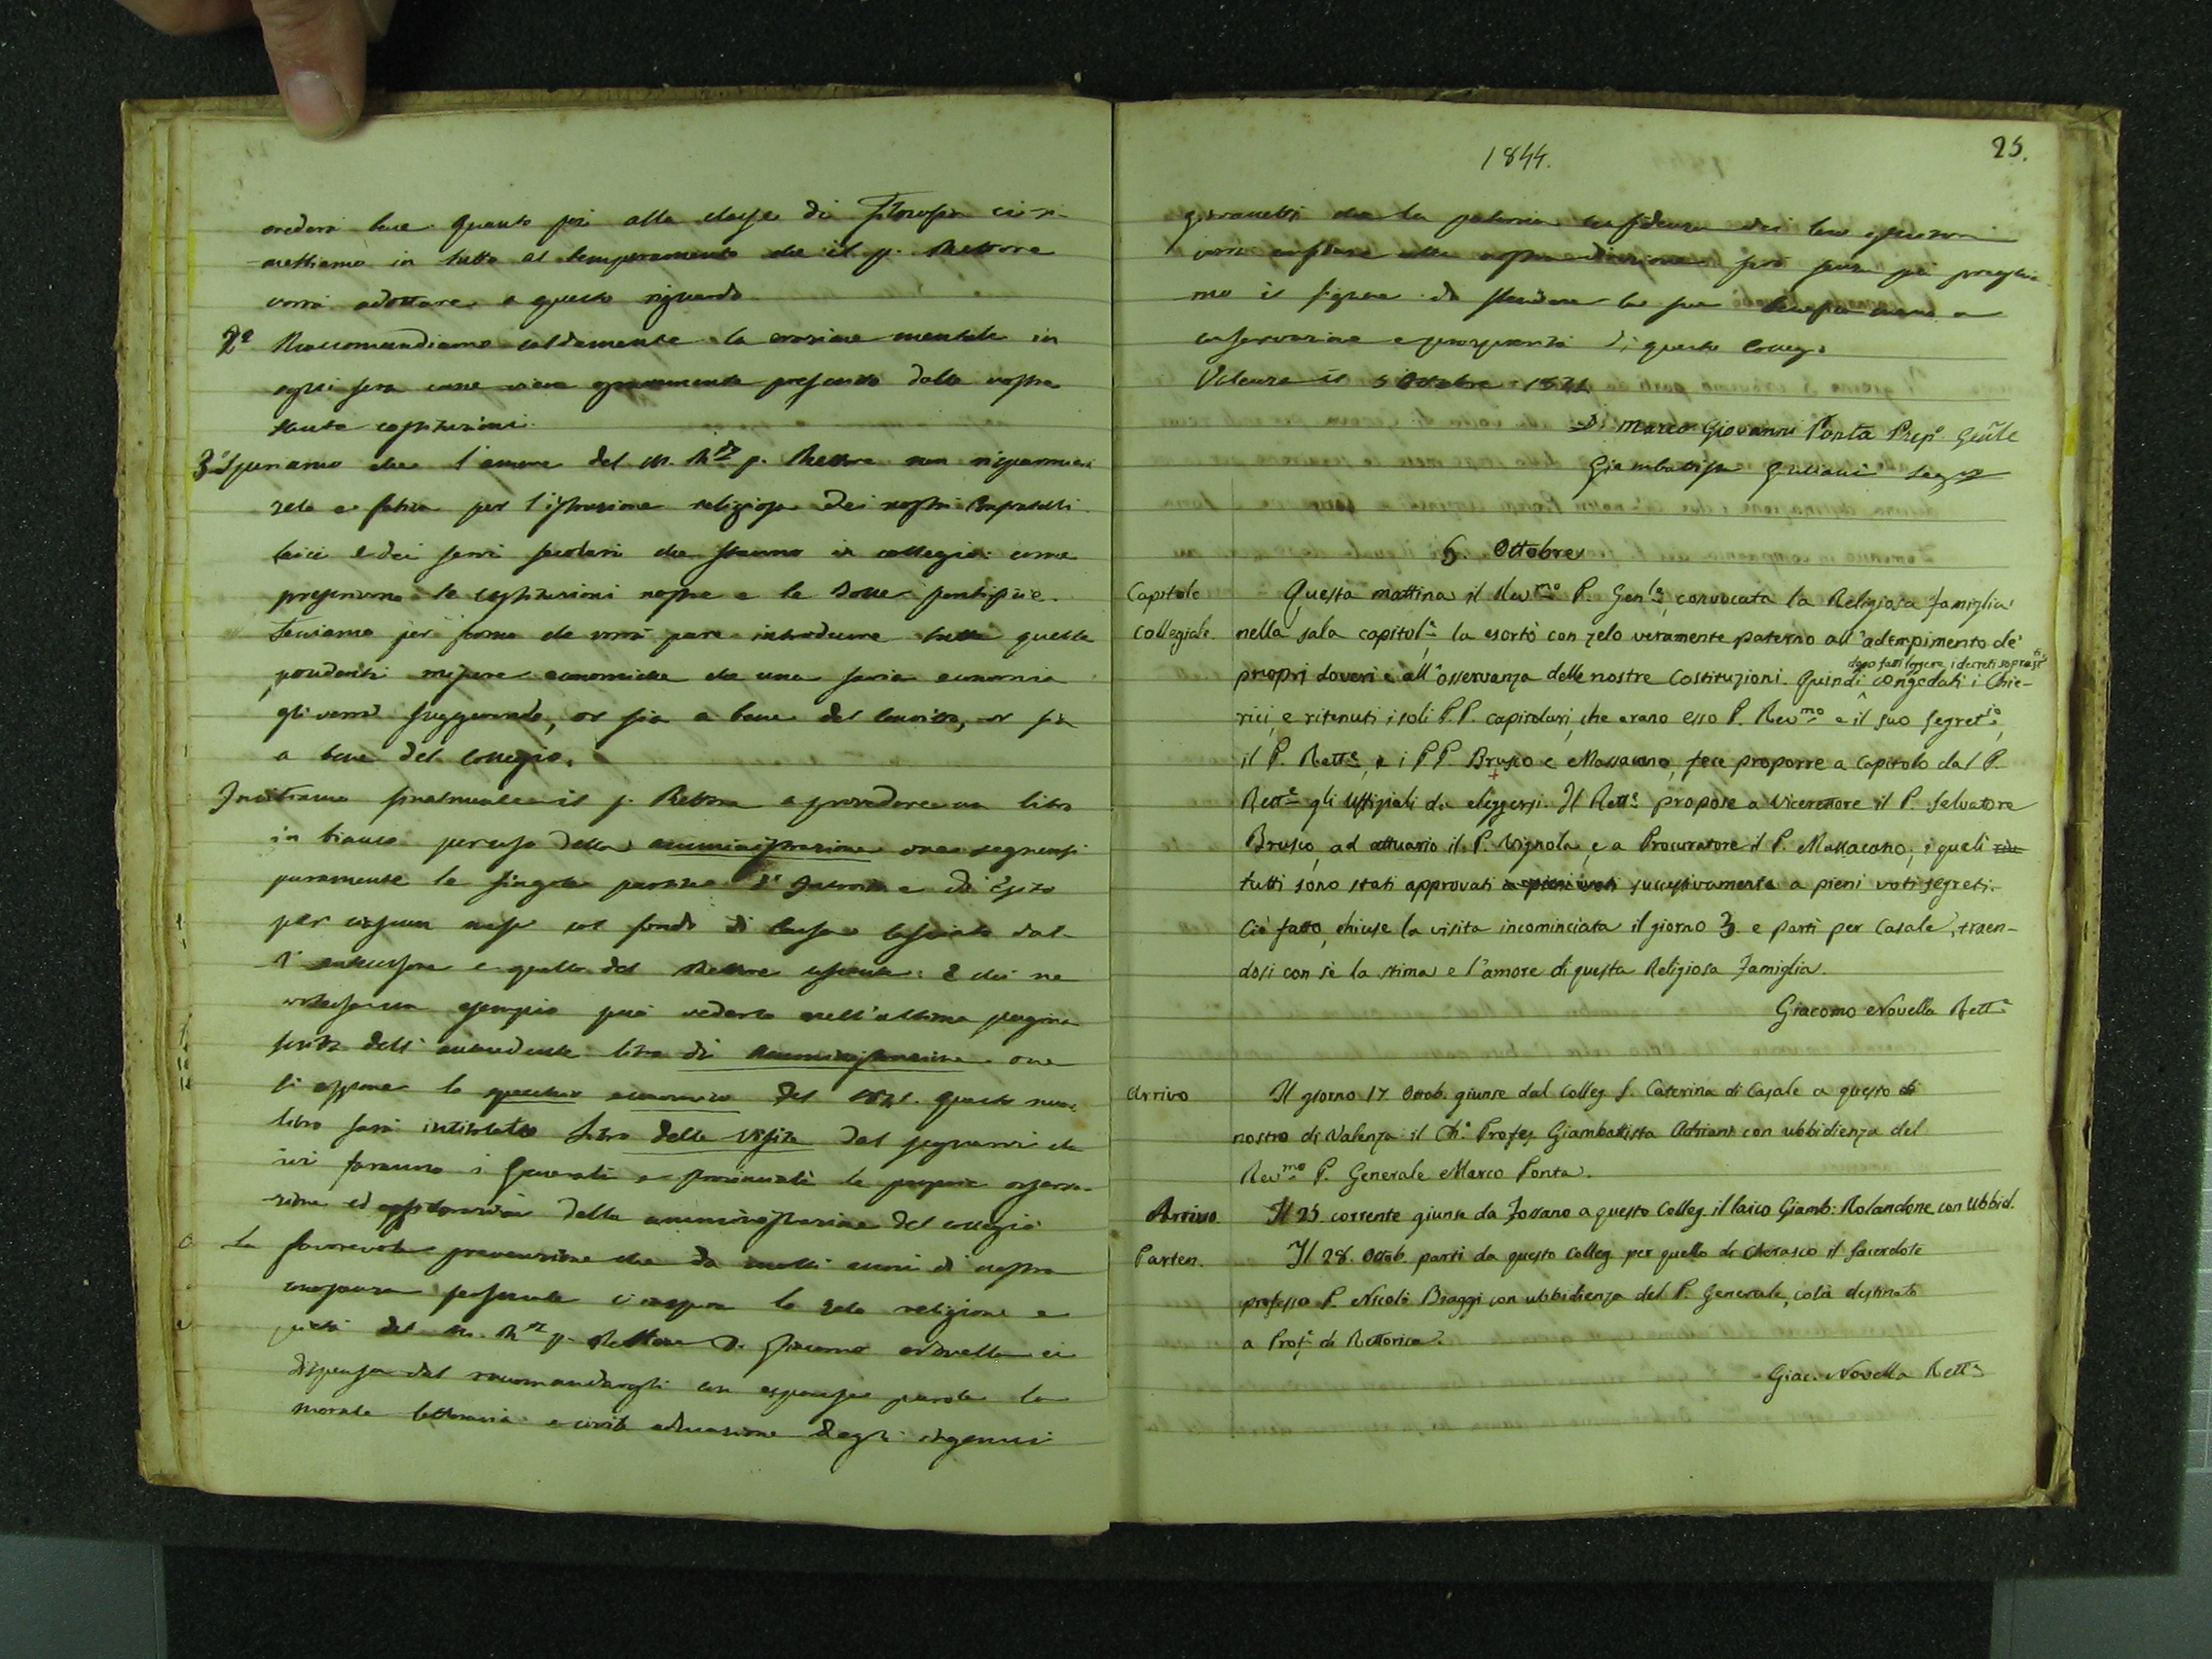 crederà bene. Quanto poi alla classe di Filosofia ci ri-
mettiamo in tutto al temperamento che il p. Rettore
vorrà adottare a questo riguardo.
2º Raccomandiamo caldamente la orazione mentale in
ogni sera come viene gravemente prescritto dalle nostre
sante costituzioni.
3º Speriamo che l'amore del M. Rdo p. Rettore non risparmierà
zelo e fatica per l'istruzione religiosa dei nostri confratelli
laici e dei servi secolari che stanno in collegio: come
prescrivono le costituzioni nostre e le Bolle pontificie.
Teniamo per fermo che vorrà pure introdurre tutte quelle
prudenti misure economiche che una savia economia
gli verrà suggerendo, or sia a bene del convitto, or sia
a bene del collegio.
Invitiamo finalmente il p. Rettore a provvedere un libro
in bianco per uso della amministrazione ove segnarsi
puramente le singole partite d'Introito e di Esito
per ciascun mese col fondo di cassa lasciato dal-
l'antecessore e quello del Rettore uscente: e chi ne
volesse un esempio può vederlo nell'ultima pagina
scritta dell'antecedente libro di amministrazione ove
si espone lo specchio economico del Questo
libro sarà intitolato Libro della Visita dal segnarvi che
ivi faranno i Generali e provinciali le proprie osserva-
zioni ed della amministrazione del collegio
La favorevole prevenzione che da molti anni di nostra
conoscenza personale c'inspira lo zelo religione e
pietà del M. Rdo p. Rettore D. Giacomo Novella ci
dispensa dal raccomandargli con espresse parole la
morale letteraria e civile educazione degli ingenui
1844.
25.
giovanetti che la paterna confidenza dei loro genitori
vorrà affidare alla nostra direzione però senza più preghia-
mo il Signore di stendere la sua benefica mano a
conservazione e prosperità di questo Colleg.o
Valenza il 5 Ottobre 1844
D. Marco Giovanni Ponta Prepº Genle
Giambattista Giuliani Segr
6. Ottobre
Capitolo
Collegiale
Questa mattina il Revmo P. Genle, convocata la Religiosa famiglia
nella sala capitole, la esortò con zelo veramente paterno all'adempimento de'
dopo fatti leggere i decreti soprasti
propri doveri e all'osservanza delle nostre Costituzioni. Quindi ^ congedati i Chie-
rici, e ritenuti i soli P.P. capitolari, che erano esso P. Revmo e il suo segretio,
il P. Rette, e i P P. Brusco e Massacano, fece proporre a Capitolo dal P.
Rette gli Uffiziali da eleggersi. Il Rette propose a Vicerettore il P. Salvatore
Brusco, ad attuario il P. Vignola, e a Procuratore il P. Massacano, i quali
tutti sono stati approvati a pieni voti successivamente a pieni voti segreti.
Ciò fatto, chiuse la visita incominciata il giorno 3. e partì per Casale, traen-
dosi con sè la stima e l'amore di questa Religiosa Famiglia.
Giacomo Novella Rette
Arrivo
Il giorno 17. Ottob. giunse dal Colleg. S. Caterina di Casale a questo di
nostro di Valenza il Ch.º Profes. Giambattista Adriani con ubbidienza del
Revmo P. Generale Marco Ponta.
Arrivo. Il 25. corrente giunse da Fossano a questo Colleg. il laico Giamb: Rolandone con Ubbid.
Parten. Il 28. Ottob. partì da questo Colleg. per quello di Cherasco il Sacerdote
professo P. Nicolò Biaggi con ubbidienza del P. Generale, colà destinato
a Profe di Rettorica.
Giac. Novella Rette